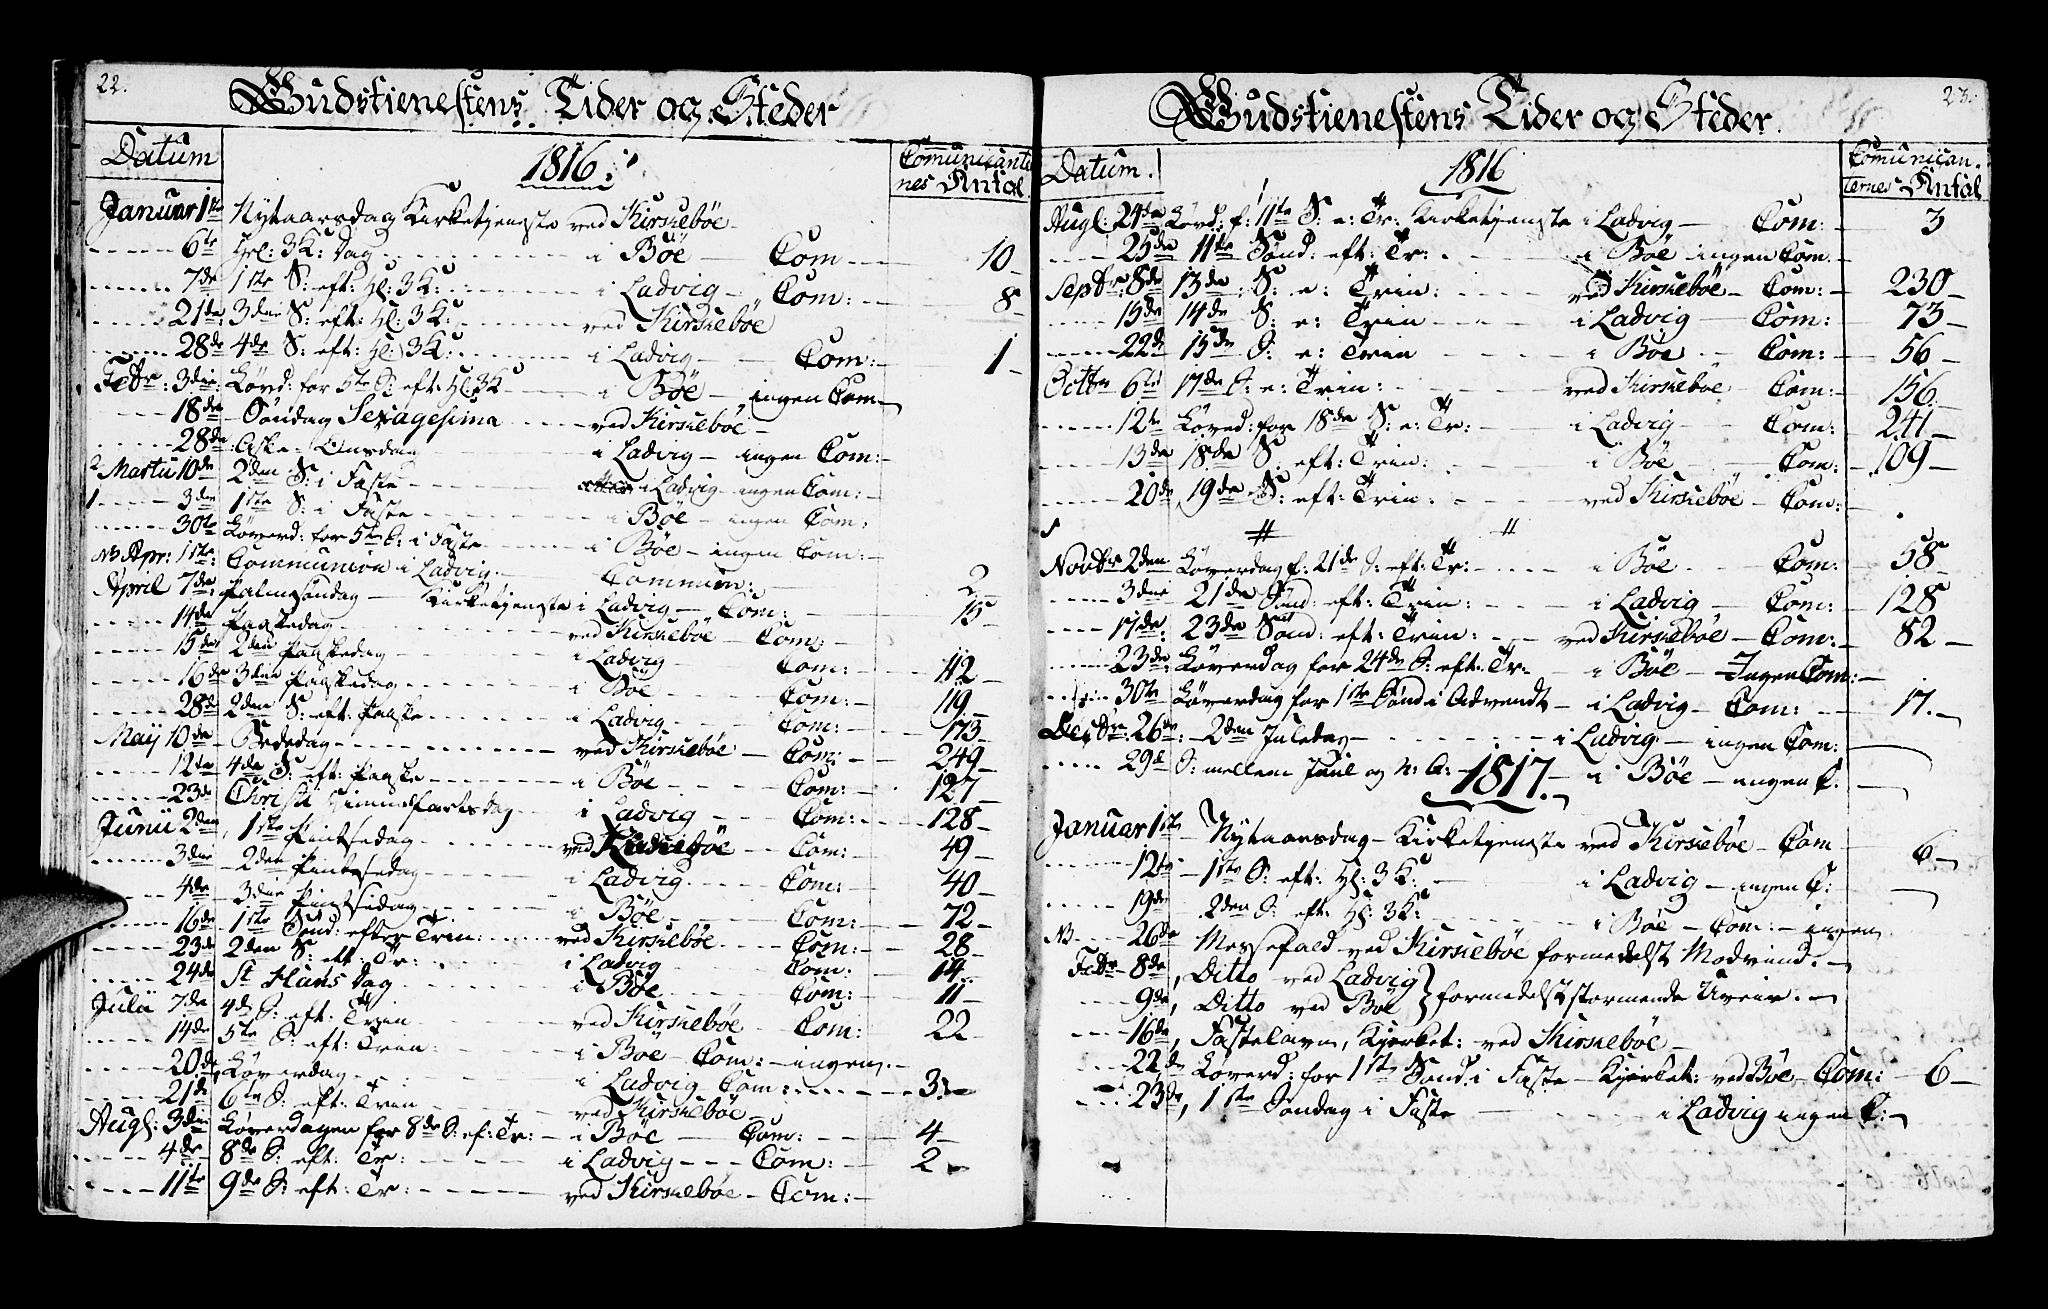 22.
Gudstienestens Tider og Steder
Datum
1816
Comunicanternes Antal
Januar 1ste Nytaarsdag Kirketjeneste ved Kirkebøe
6te Hel: 3K: dag i Böe Com 10
7de 1ste S: eft: Hl: 3K: i Ladvig Com: 8
21de 3die S: eft: Hl: 3K: ved Kirkebøe
28de 4de S: eft: Hl: 3K: i Ladvig Com: 1
Febr: 3die Løvd: for 5te S: eft: Hl: 3K i Böe ingen Com
18de Söndag Sexagesima ved Kirkebøe
28de Aske-Onsdag i Ladvig ingen Com:
2 Martii 10de 2den S: i Faste i Ladvig ingen Com:
1 3die 1ste S: i Faste i Böe ingen Com:
30te Löverd: for 5te S: i Faste i Böe ingen Com:
NB Apr: 1ste Communion i Ladvig Commun: 2
April 7de Palmesöndag Kirketjeneste i Ladvig Com: 15
14de Paaskedag ved Kirkebøe Com:
15de 2den Paaskedag i Ladvig Com: 112
16de 3die Paaskedag i Böe Com: 119
28de 2den S: eft: Paaske i Ladvig Com: 173
Maij 10de Bededag ved Kirkebøe Com: 249
12te 4de S: eft: Paaske i Böe Com: 127
23de Christi Himmelfartsdag i Ladvig Com: 128
Junii 2den 1ste Pintsedag ved Kirkebøe Com: 49
3die 2den Pintsedag i Ladvig Com: 40
4de 3die Pintsedag i Böe Com: 72
16de 1ste Sönd: efter Trin: ved Kirkebøe Com: 28
23de 2den S: eft: Tr: i Ladvig Com: 14
24de St Hans Dag i Böe Com: 11
Julii 7de 4de S: eft: Trin ved Kirkebøe Com: 22
14de 5te S: eft: Trin: i Böe Com: ingen
20de Löverdag i Ladvig Com: 3
21de 6te S: eft: Trin ved Kirkebøe
Augl: 3die Löverdagen for 8de S: ef: Tr: i Böe Com: 4
4de 8de S: eft: Tr: i Ladvig Com: 2
11te 9de S: eft: Tr: ved Kirkebøe Com:
23.
Gudstienestens Tider og Steder.
Datum.
1816
Comunicanternes Antal
Augl: 24de Lövd: f: 11te S: e: Tr: Kirketjeneste i Ladvig Com: 3
25de 11te Sönd: eft: Tr: i Böe ingen Com.
Septbr: 8de 13de S: e: Trin: ved Kirkebøe Com: 230
15de 14de S: e: Trin i Ladvig Com: 73
22de 15de S: e: Trin i Böe Com: 56
Octbr 6te 17de S: e: Trin: ved Kirkebøe Com: 156
12te Löverd: for 18de S: e: Tr: i Ladvig Com: 241
13de 18de S: eft: Trin: i Böe Com: 109
20de 19de S: eft: Trin: ved Kirkebøe Com:
Novbr 2den Löverdag f: 21de S: eft: Tr: i Böe Com: 58
3die 21de Sönd: eft: Trin: i Ladvig Com: 128
17de 23de Sönd: eft: Trin: ved Kirkebøe Com: 82
23de Löverdag for 24de S: eft: Tr: i Böe Ingen Com:
30te Löverdag for 1ste Sönd i Advendt i Ladvig Com: 17.
Decbr: 26de 2den Juledag i Ladvig ingen Com:
29de S: mellem Juul og N: A: i Böe ingen C:
1817.
Januar 1ste Nytaarsdag Kirketjeneste ved Kirkebøe Com 6
12te 1ste S: eft: Hl: 3K: i Ladvig ingen C:
19de 2den S: eft: Hl: 3K: i Böe Com: ingen
NB 26de Messefald ved Kirkebøe formedelst Modvind.
Febr 8de, Ditto ved Ladvig
9de, Ditto ved Böe } formedelst stormende Uveir.
16de, Fastelavn, Kjerket: ved Kirkebøe
22de Löverd: for 1ste Sönd. i Faste Kjerket: ved Böe Com: 6
23de, 1ste Söndag i Faste i Ladvig ingen C: